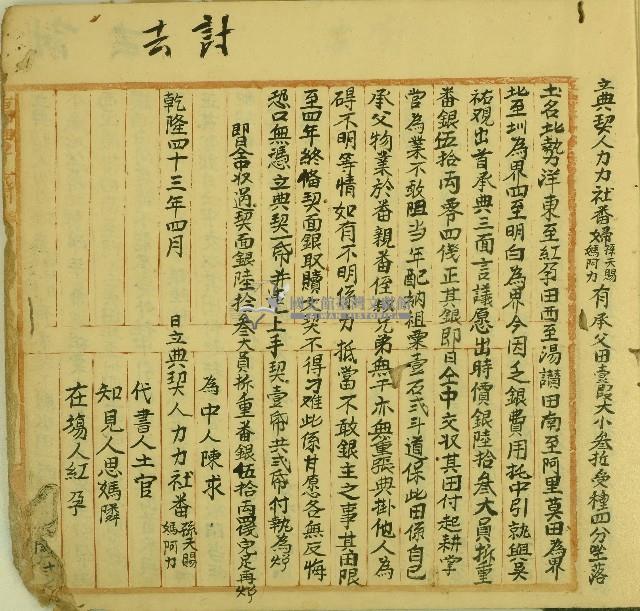 討去
立典契人力力社番婦孫天賜媽阿力有承父田壹段大小叁坵受種四分坐落
土名北勢洋東至紅孕田西至湯讚田南至阿里莫田為界
北至圳為界四至明白為界今因乏銀費用托中引就與吳
祐观出首承典三面言議愿出時價銀陸拾叁大員折重
番銀伍拾両零四伐正其銀即日仝中交收其田付起耕掌
管為業不敢阻当年配納租粟壹石弍斗道保此田係自己
承父物業於番親番侄兄弟無干亦無重張典掛他人為
碍不明等情如有不明係力抵當不敢銀主之事其田限
至四年終俻契面銀取贖契不得刁难此係甘愿各無反悔
恐口無憑立典契一帋并上手契壹帋共弍帋付執為炤
即日仝中收過契面銀陸拾叁大員折重番銀伍拾両完足再炤
為中人陳求
乾隆四十三年四月 日立典契人力力社番孫天賜媽阿力
代書人土官
知見人思媽隣
在塲人紅孕
國史館臺灣文獻館
TAIWAN HISTORICA